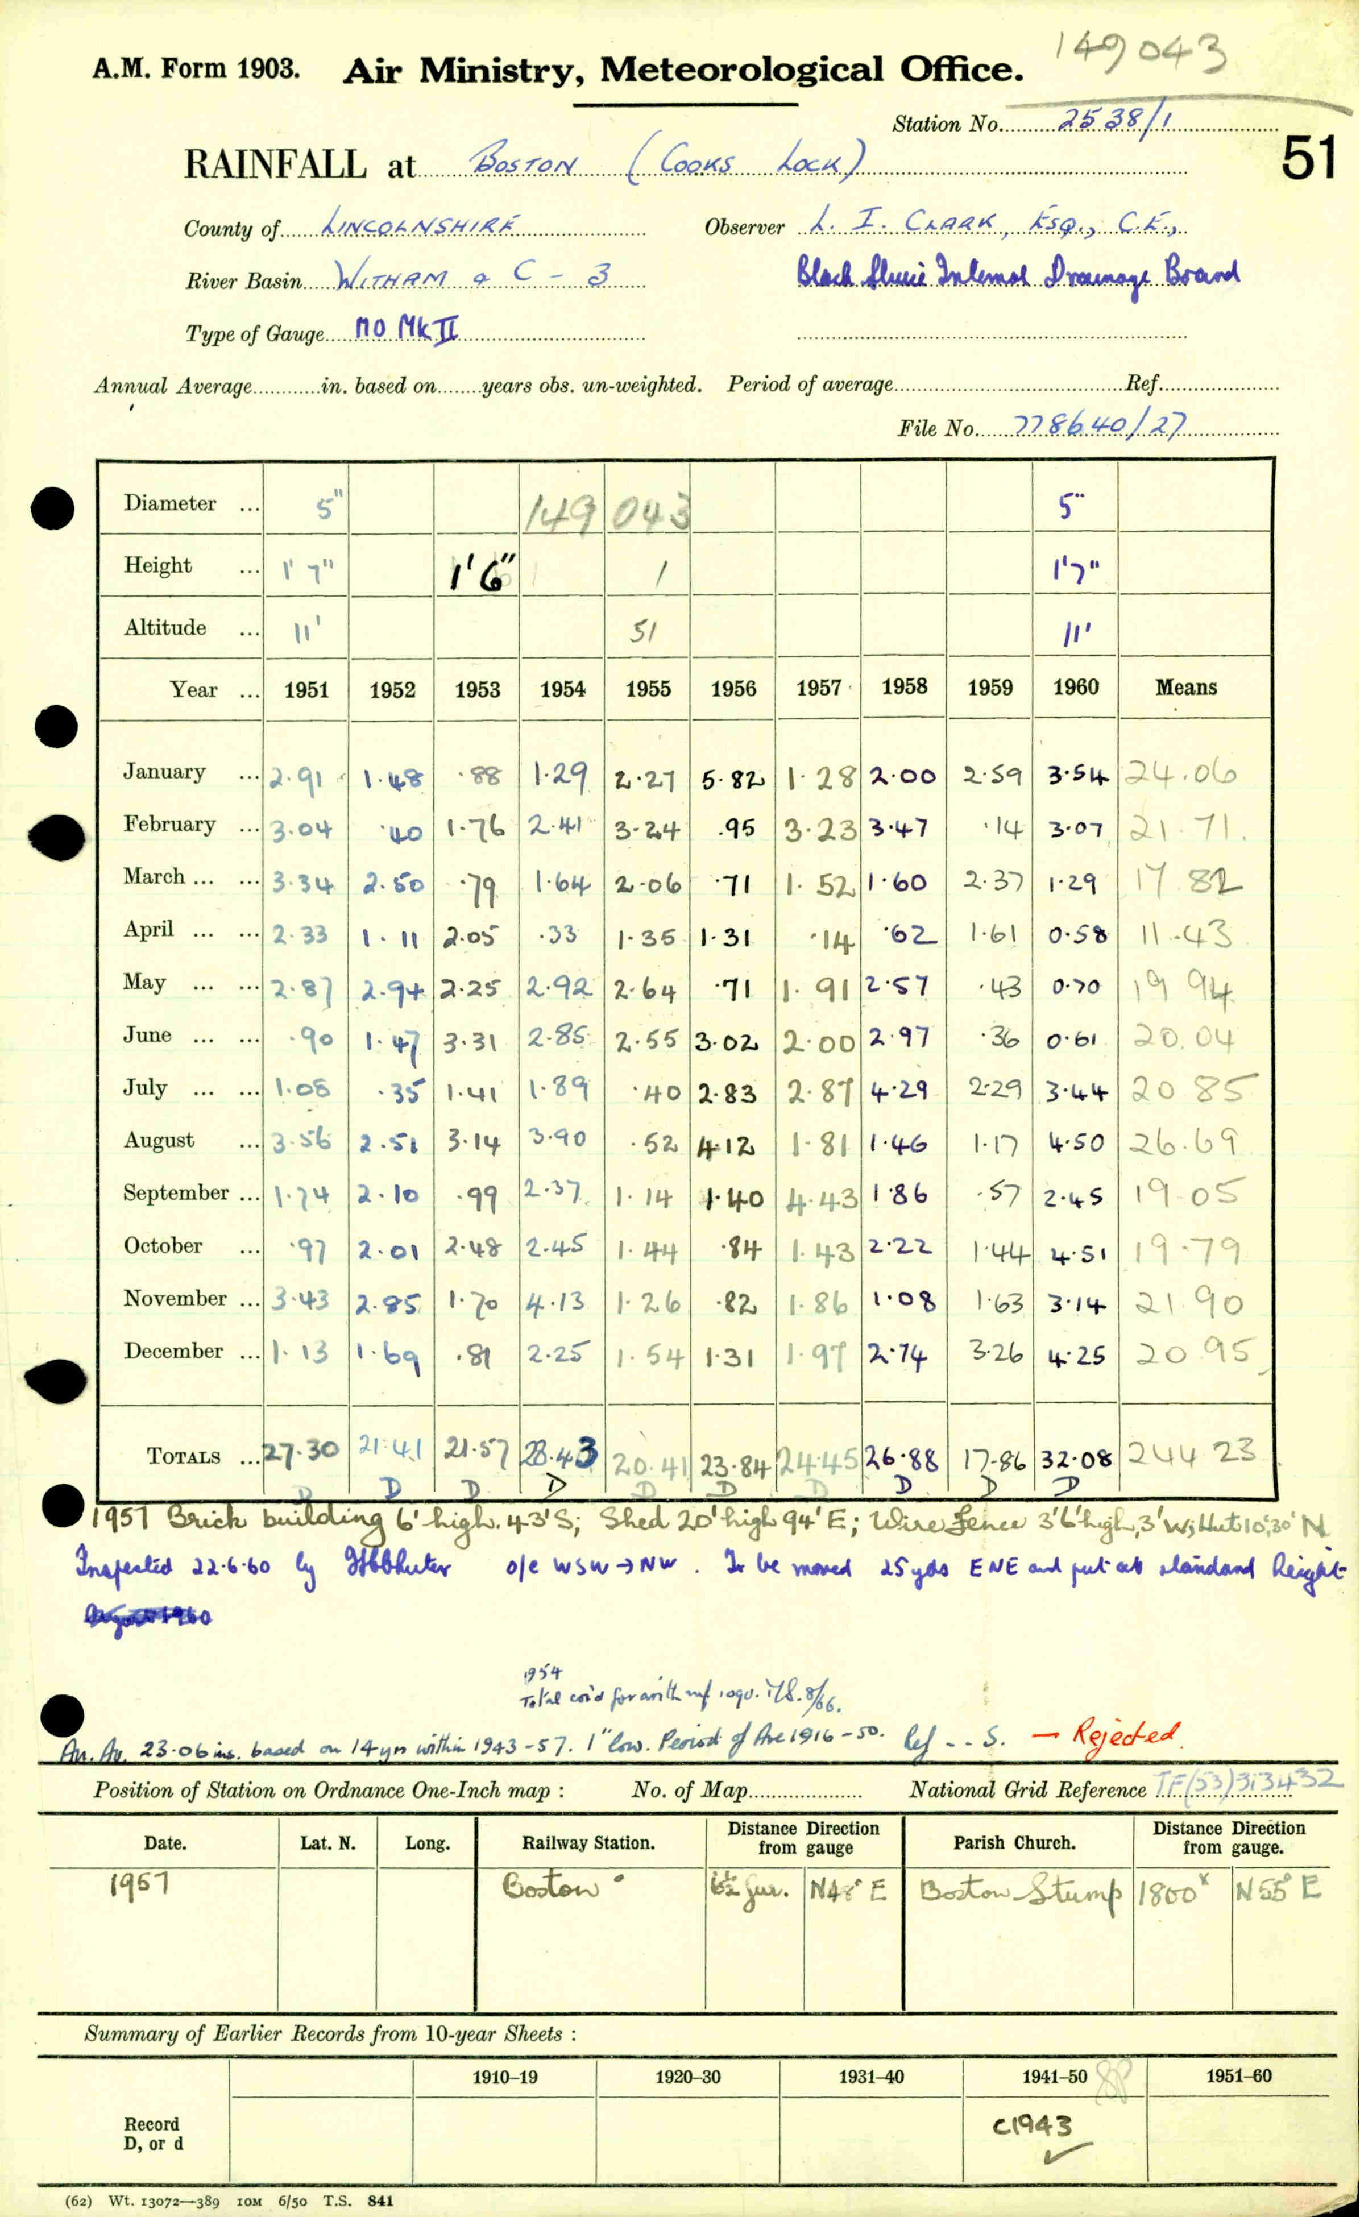 149043
A.M. Form 1903. Air Ministry, Meteorological Office.
Station No. 2538/1
51
RAINFALL at BOSTON (COOKS LOCK)
County of LINCOLNSHIRE Observer L. I. CLARK, ESQ., C.E.,
River Basin WITHAM & C - 3 Black Sluice Internal Drainage Board
Type of Gauge MO Mk II
Annual Average in. based on years obs. un-weighted. Period of average Ref.
File No. 778640/27
Diameter ... 5" 149 043 5"
Height ... 1' 7" 1'6" 1 1'7"
Altitude ... 11' 51 11'
Year ... 1951 1952 1953 1954 1955 1956 1957 1958 1959 1960 Means
January ... 2.91 1.48 .88 1.29 2.27 5.82 1.28 2.00 2.59 3.54 24.06
February ... 3.04 .40 1.76 2.41 3.24 .95 3.23 3.47 .14 3.07 21.71
March ... ... 3.34 2.50 .79 1.64 2.06 .71 1.52 1.60 2.37 1.29 17 82
April ... ... 2.33 1.11 2.05 .33 1.35 1.31 .14 .62 1.61 0.58 11.43
May ... ... 2.87 2.94 2.25 2.92 2.64 .71 1.91 2.57 .43 0.70 19 94
June ... ... .90 1.47 3.31 2.85 2.55 3.02 2.00 2.97 .36 0.61 20.04
July ... ... 1.08 .35 1.41 1.89 .40 2.83 2.87 4.29 2.29 3.44 20 85
August ... 3.56 2.51 3.14 3.90 .52 4.12 1.81 1.46 1.17 4.50 26.69
September ... 1.74 2.10 .99 2.37 1.14 1.40 4.43 1.86 .57 2.45 19.05
October ... .97 2.01 2.48 2.45 1.44 .84 1.43 2.22 1.44 4.51 19.79
November ... 3.43 2.85 1.70 4.13 1.26 .82 1.86 1.08 1.63 3.14 21 90
December ... 1.13 1.69 .81 2.25 1.54 1.31 1.97 2.74 3.26 4.25 20 95
TOTALS ... 27.30 21.41 21.57 28.43 20.41 23.84 24.45 26.88 17.86 32.08 244 23
D D D D D D D D D D
1957 Brick building 6' high. 43'S; Shed 20' high 94' E; Wire Fence 3'6" high, 3' W; Hut 10', 30' N
Inspected 22.6.60 by o/e WSW → NW. To be moved 25 yds ENE and put at standard height
1954
Total cor'd for arith 8/66.
An. Av. 23.06 ins. based on 14 yrs within 1943-57. 1" low. Period of Ave 1916-50. Ref -- S. — Rejected.
Position of Station on Ordnance One-Inch map : No. of Map National Grid Reference TF(53)313432
Date. Lat. N. Long. Railway Station. Distance from Direction gauge Parish Church. Distance from Direction gauge.
1957 Boston 6½ fur. N48° E Boston Stump 1800ˣ N55° E
Summary of Earlier Records from 10-year Sheets :
1910–19 1920–30 1931–40 1941–50 1951–60
Record
D, or d
c1943 ✓
(62) Wt. 13072—389 10M 6/50 T.S. 841